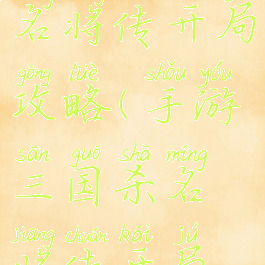 名将传开局
gōng lüè shǒu yóu
攻略(手游
sān guó shā míng
三国杀名
jiāng chuán kāi jú
将传开局